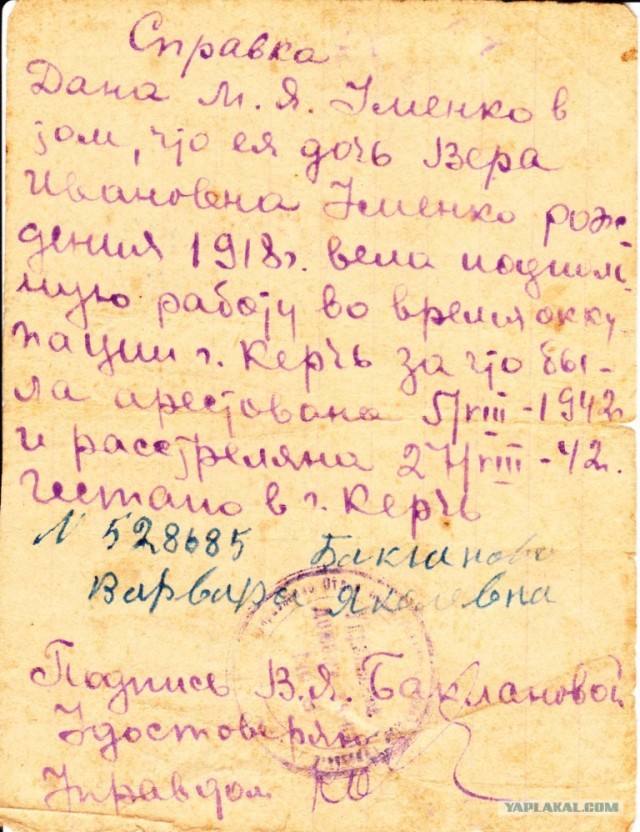 Справка
Дана М. Я. Уменко в
том, что ея дочь Вера
Ивановна Уменко рож-
дения 1918г. вела подполь-
ную работу во время окку-
пации г. Керчь за что бы-
ла арестована 5/VIII-1942г
и расстреляна 27/VIII-42г.
Гестапо в г. Керчь
N 528685 Бакланова
Варвара Яколевна
Подпись В.Я. Баклановой
Удостоверяю
Управдом
YAPLAKAL.COM